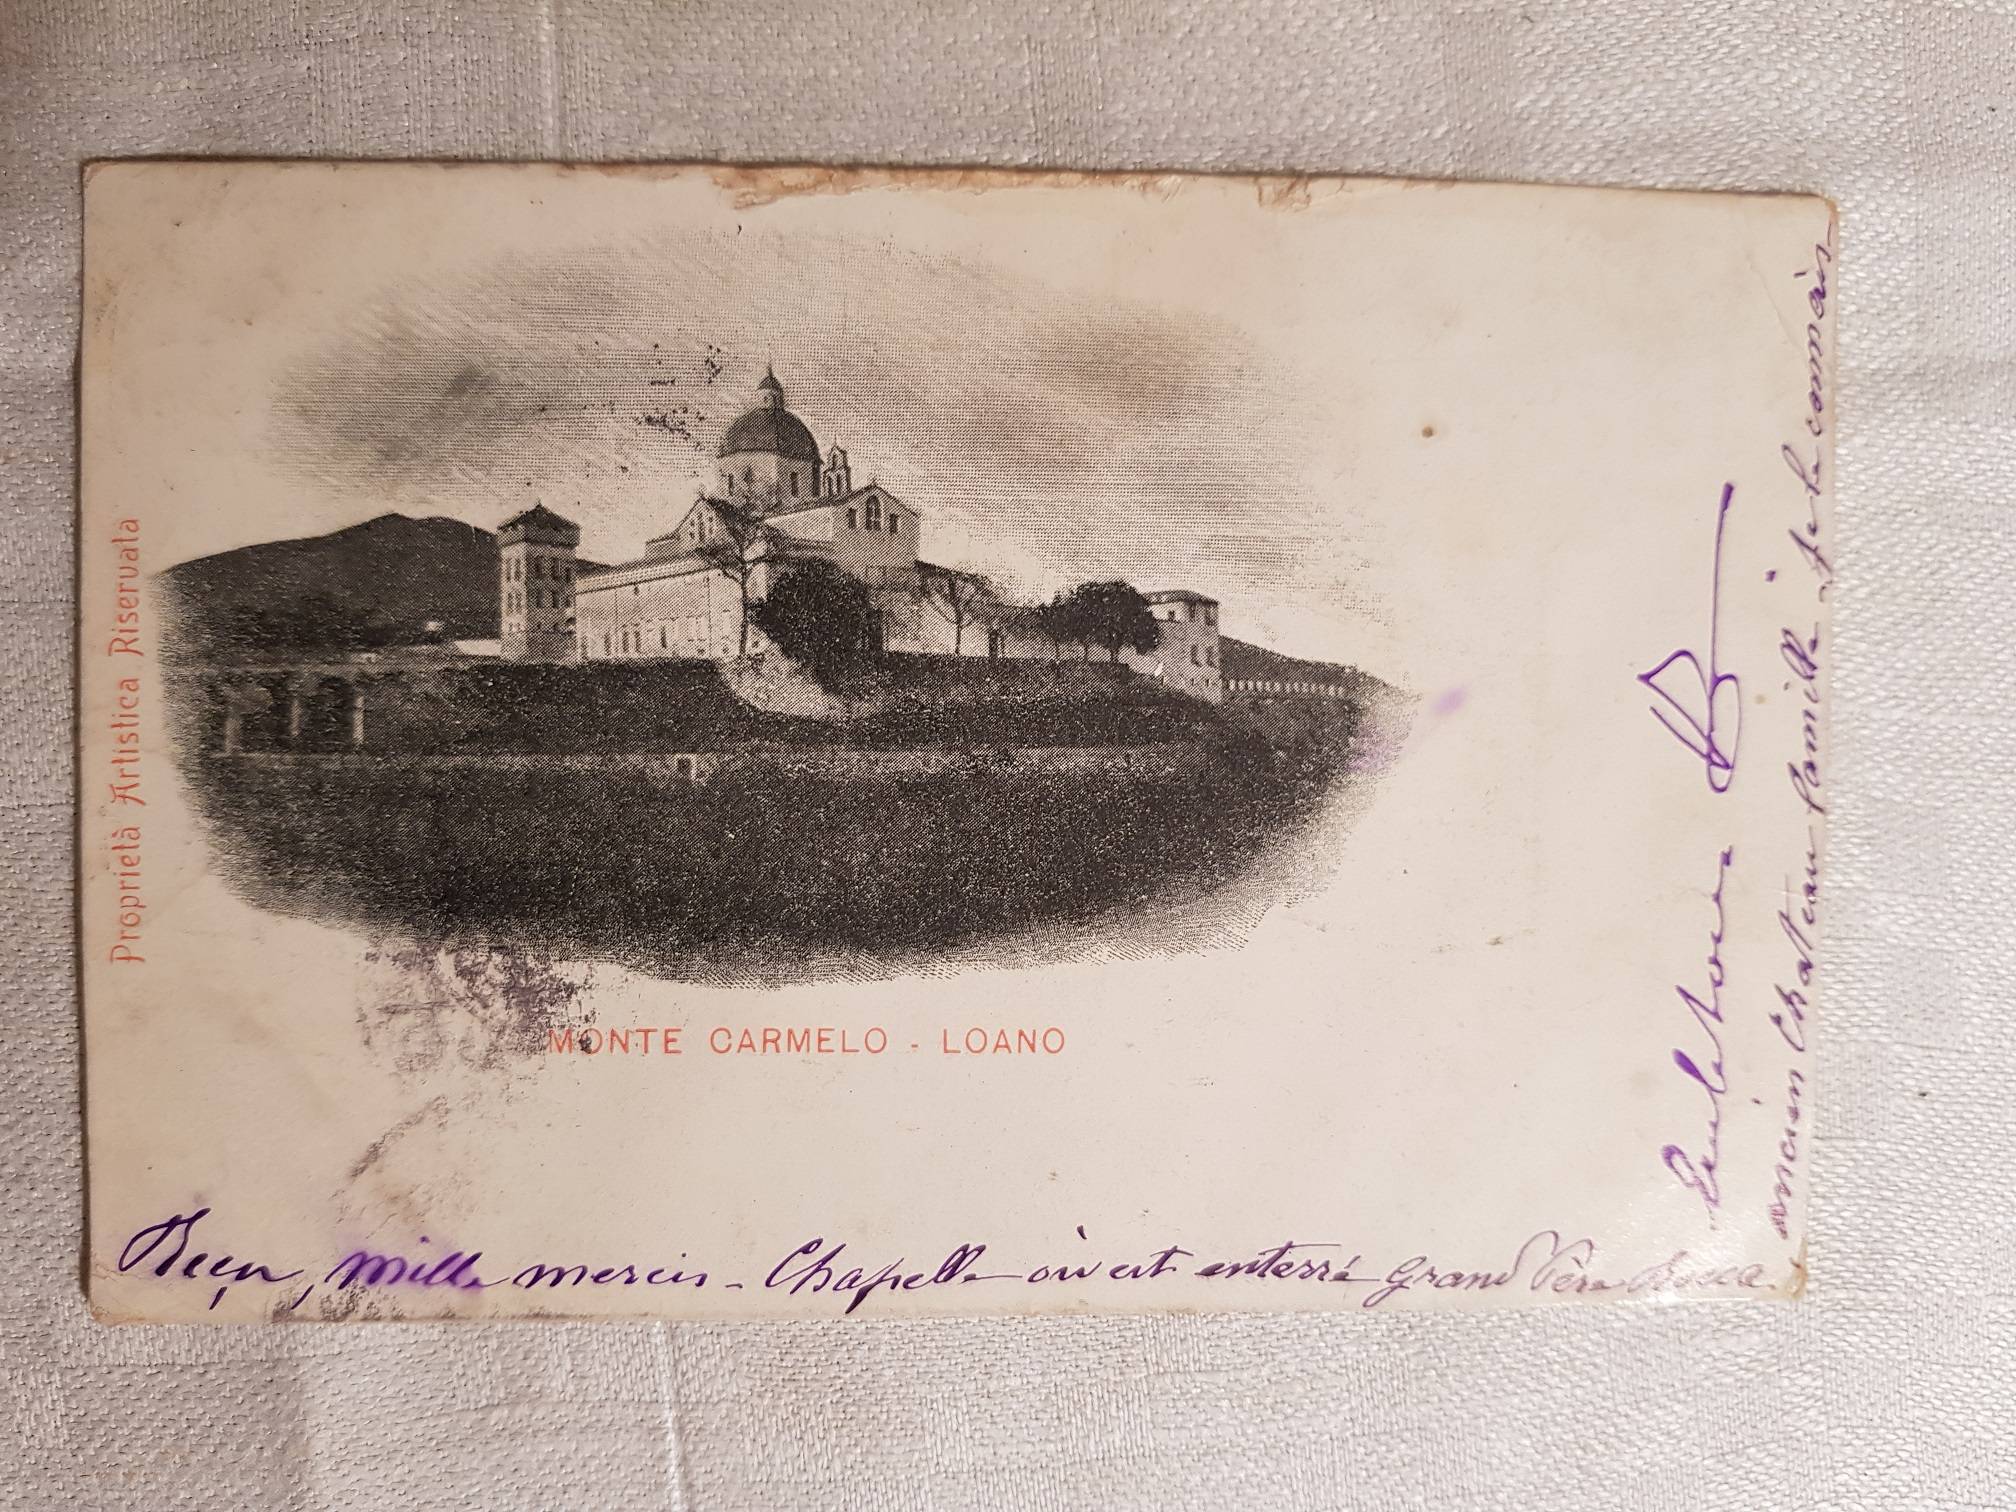 Proprietà Artistica Riservata
MONTE CARMELO - LOANO
Reçu, mille mercis - Chapelle où est enterré Grand Père Rocca
ancien Chateau famille
Salutations